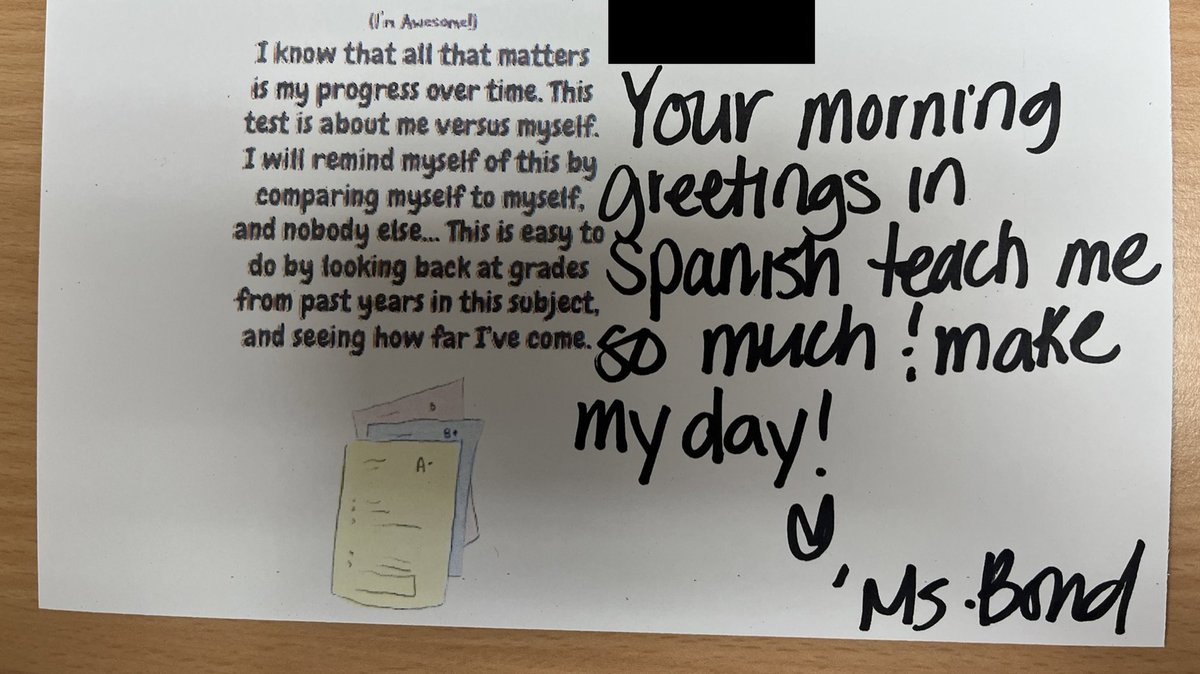 (I'm Awesome!)
I know that all that matters
is my progress over time. This
test is about me versus myself.
I will remind myself of this by
comparing myself to myself,
and nobody else... This is easy to
do by looking back at grades
from past years in this subject,
and seeing how far I've come.
B
B+
A-
Your morning
greetings in
Spanish teach me
so much! make
my day!
Ms. Bond